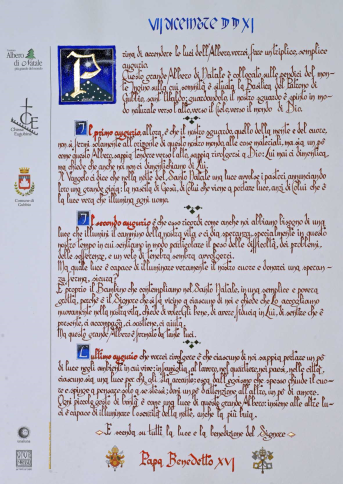 VII DICEMBRE MMXI
Prima di accendere le luci dell'Albero, vorrei fare un triplice, semplice
augurio.
Questo grande Albero di Natale è collocato sulle pendici del mon-
te Ingino sulla cui sommità è situata la Basilica del Patrono di
Gubbio, sant'Ubaldo: guardandolo il nostro sguardo è spinto in mo-
do naturale verso l'alto, verso il Cielo, verso il mondo di Dio.
Il primo augurio, allora, è che il nostro sguardo, quello della mente e del cuore,
non si fermi solamente all'orizzonte di questo nostro mondo, alle cose materiali, ma sia un po'
come questo Albero, sappia tendere verso l'alto, sappia rivolgersi a Dio: Lui mai ci dimentica,
ma chiede che anche noi non ci dimentichiamo di Lui.
Il Vangelo ci dice che nella notte del Santo Natale una luce avvolse i pastori annunciando
loro una grande gioia: la nascita di Gesù, di Colui che viene a portare luce, anzi di Colui che è
la luce vera che illumina ogni uomo.
Il secondo augurio è che esso ricordi come anche noi abbiamo bisogno di una
luce che illumini il cammino della nostra vita e ci dia speranza, specialmente in questo
nostro tempo in cui sentiamo in modo particolare il peso delle difficoltà, dei problemi,
delle sofferenze, e un velo di tenebra sembra avvolgerci.
Ma quale luce è capace di illuminare veramente il nostro cuore e donarci una speran-
za ferma, sicura?
È proprio il Bambino che contempliamo nel Santo Natale, in una semplice e povera
grotta, perché è il Signore che si fa vicino a ciascuno di noi e chiede che Lo accogliamo
nuovamente nella nostra vita, chiede di volerGli bene, di avere fiducia in Lui, di sentire che è
presente, ci accompagna, ci sostiene, ci aiuta.
Ma questo grande Albero è formato da tante luci.
L'ultimo augurio che vorrei rivolgere è che ciascuno di noi sappia portare un po'
di luce negli ambienti in cui vive: in famiglia, al lavoro, nel quartiere, nei paesi, nelle città,
ciascuno sia una luce per chi gli sta accanto; esca dall'egoismo che spesso chiude il cuo-
re e spinge a pensare solo a se stessi; doni un po' di attenzione all'altro, un po' di amore.
Ogni piccolo gesto di bontà è come una luce di questo grande Albero: insieme alle altre lu-
ci è capace di illuminare l'oscurità della notte, anche la più buia.
E scenda su tutti la luce e la benedizione del Signore
Papa Benedetto XVI
Albero di Natale
Chiesa Eugubina
Comune di
Gubbio